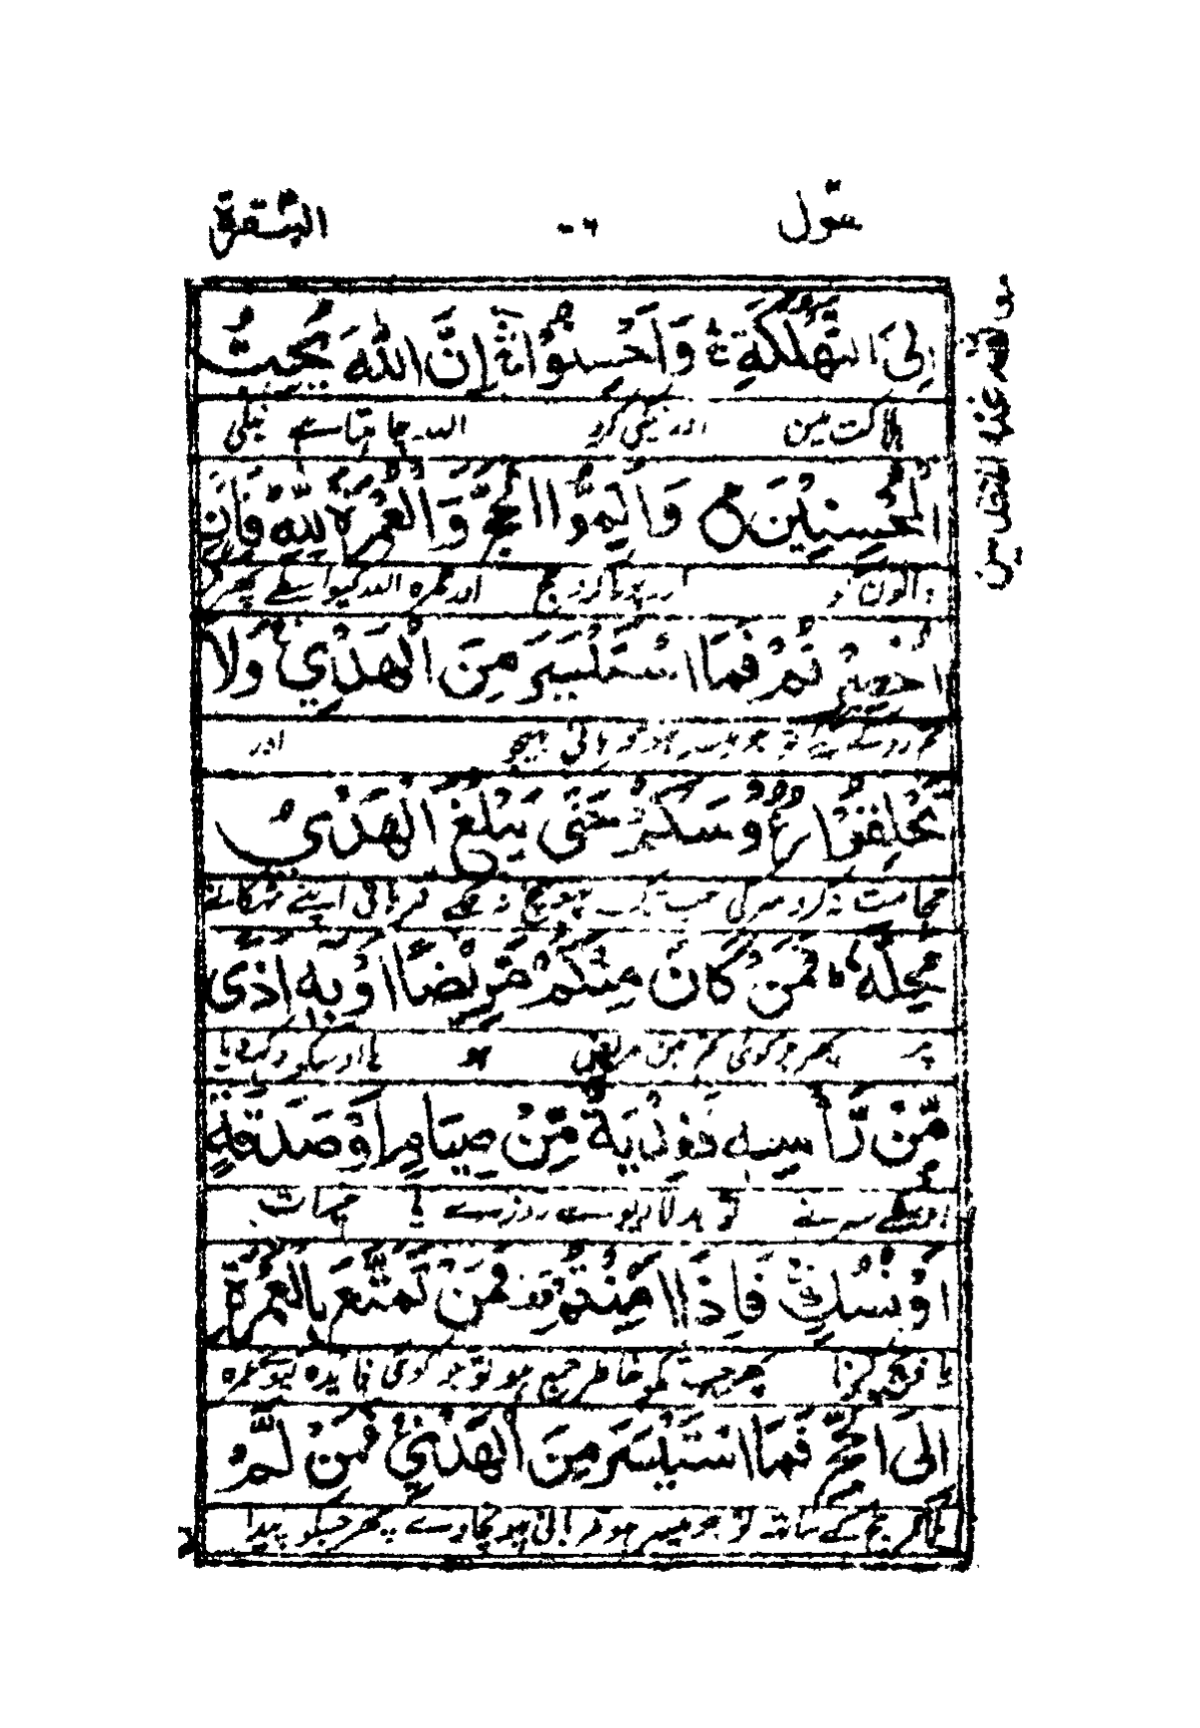 سَیَقُول ۲۰ البَقَرَة
اِلَى التَّهْلُكَةِ وَاَحْسِنُوْا اِنَّ اللّٰهَ يُحِبُّ
ہلاکت مین اور نیکی کرو اللہ چاہتا ہے نیکی
الْمُحْسِنِيْنَ وَاَتِمُّوا الْحَجَّ وَالْعُمْرَةَ لِلّٰهِ فَاِنْ
والون کو اور پورا کرو حج اور عمرہ اللہ کیواسطے پھر گر
اُحْصِرْتُمْ فَمَا اسْتَيْسَرَ مِنَ الْهَدْيِ وَلَا
تم روکے گئے تو جو میسر ہو قربانی بھیجو اور
تَحْلِقُوْا رُءُوْسَكُمْ حَتّٰى يَبْلُغَ الْهَدْيُ
حجامت نہ کرو سر کی جب تک پہونچ نہ چکے قربانی اپنے ٹھکانے
مَحِلَّهٗ ط فَمَنْ كَانَ مِنْكُمْ مَّرِيْضًا اَوْ بِهٖ اَذًى
پر پھر جو کوئی تم مین مریض ہو یا اوسکو دکھ دیا
مِّنْ رَّاْسِهٖ فَفِدْيَةٌ مِّنْ صِيَامٍ اَوْ صَدَقَةٍ
اوسکے سر نے تو بدلا دیوے روزے یا خیرات
اَوْ نُسُكٍ فَاِذَا اَمِنْتُمْ فَمَنْ تَمَتَّعَ بِالْعُمْرَةِ
یا ذبح کرنا پھر جب تمکو خاطر جمع ہو تو جو کوئی فایدہ لیوے عمرہ
اِلَى الْحَجِّ فَمَا اسْتَيْسَرَ مِنَ الْهَدْيِ فَمَنْ لَّمْ
ملا کر حج کے ساتھ تو جو میسر ہو قربانی پہونچاوے پھر جسکو پیدا